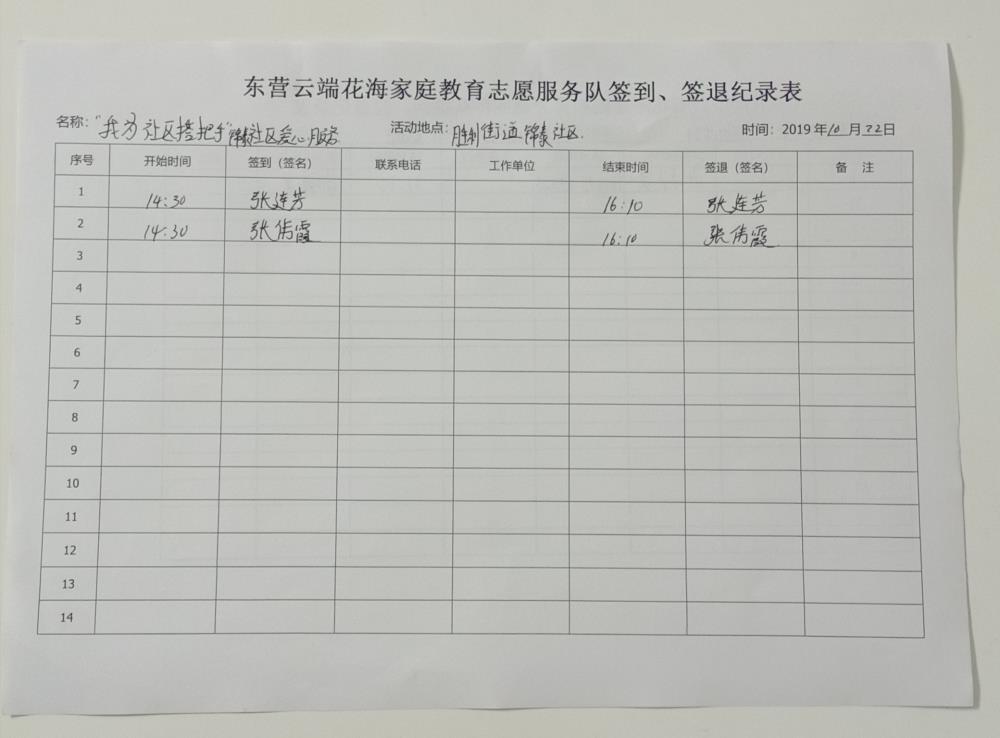 东营云端花海家庭教育志愿服务队签到、签退纪录表
名称：“我为社区搭把手”锦泰社区爱心服务 活动地点：胜利街道锦泰社区. 时间：2019年10月22日
序号 开始时间 签到（签名） 联系电话 工作单位 结束时间 签退（签名） 备 注
1 14:30 张连芳 16:10 张连芳
2 14:30 张伟霞 16:10 张伟霞
3
4
5
6
7
8
9
10
11
12
13
14